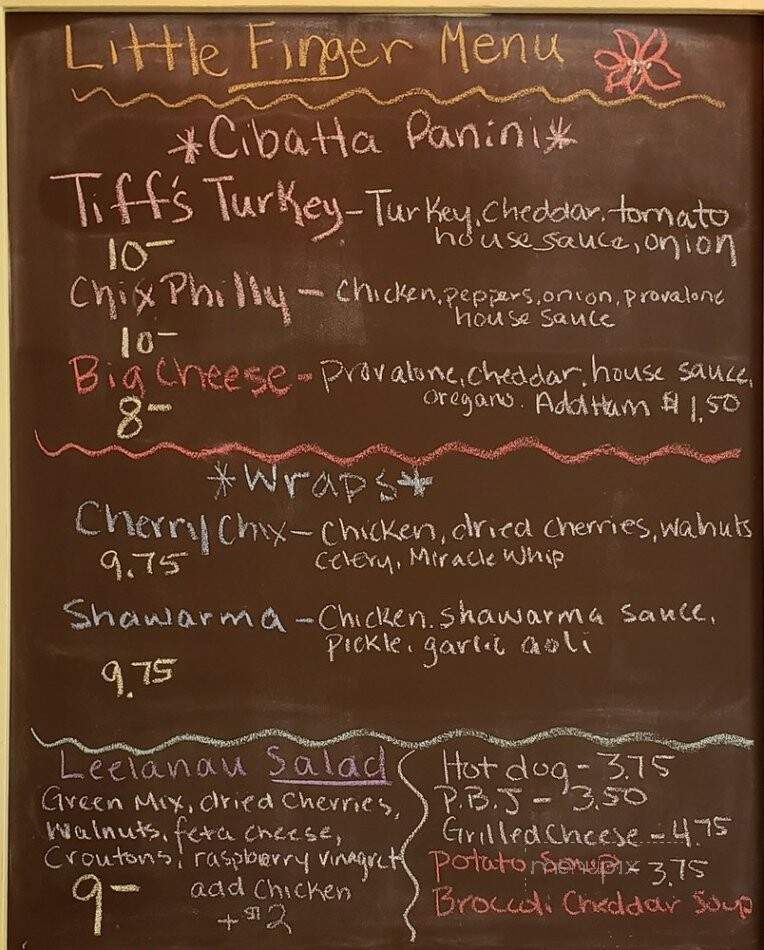 Little Finger Menu
*Cibatta Panini*
Tiff's Turkey - Turkey, cheddar, tomato
house sauce, onion
10-
Chix Philly - Chicken, peppers, onion, provalone
house sauce
10-
Big Cheese - Provalone, cheddar, house sauce,
oregano. Add Ham $1.50
8-
*Wraps*
Cherry Chix - Chicken, dried cherries, walnuts
Celery, Miracle Whip
9.75
Shawarma - Chicken, shawarma sauce,
pickle, garlic aoli
9.75
Leelanau Salad
Green Mix, dried Cherries,
Walnuts, feta cheese,
Croutons, raspberry vinagret
9- add Chicken
+ $2
Hot dog - 3.75
P.B.J - 3.50
Grilled Cheese - 4.75
Potato Soup - 3.75
Broccoli Cheddar Soup
menupix